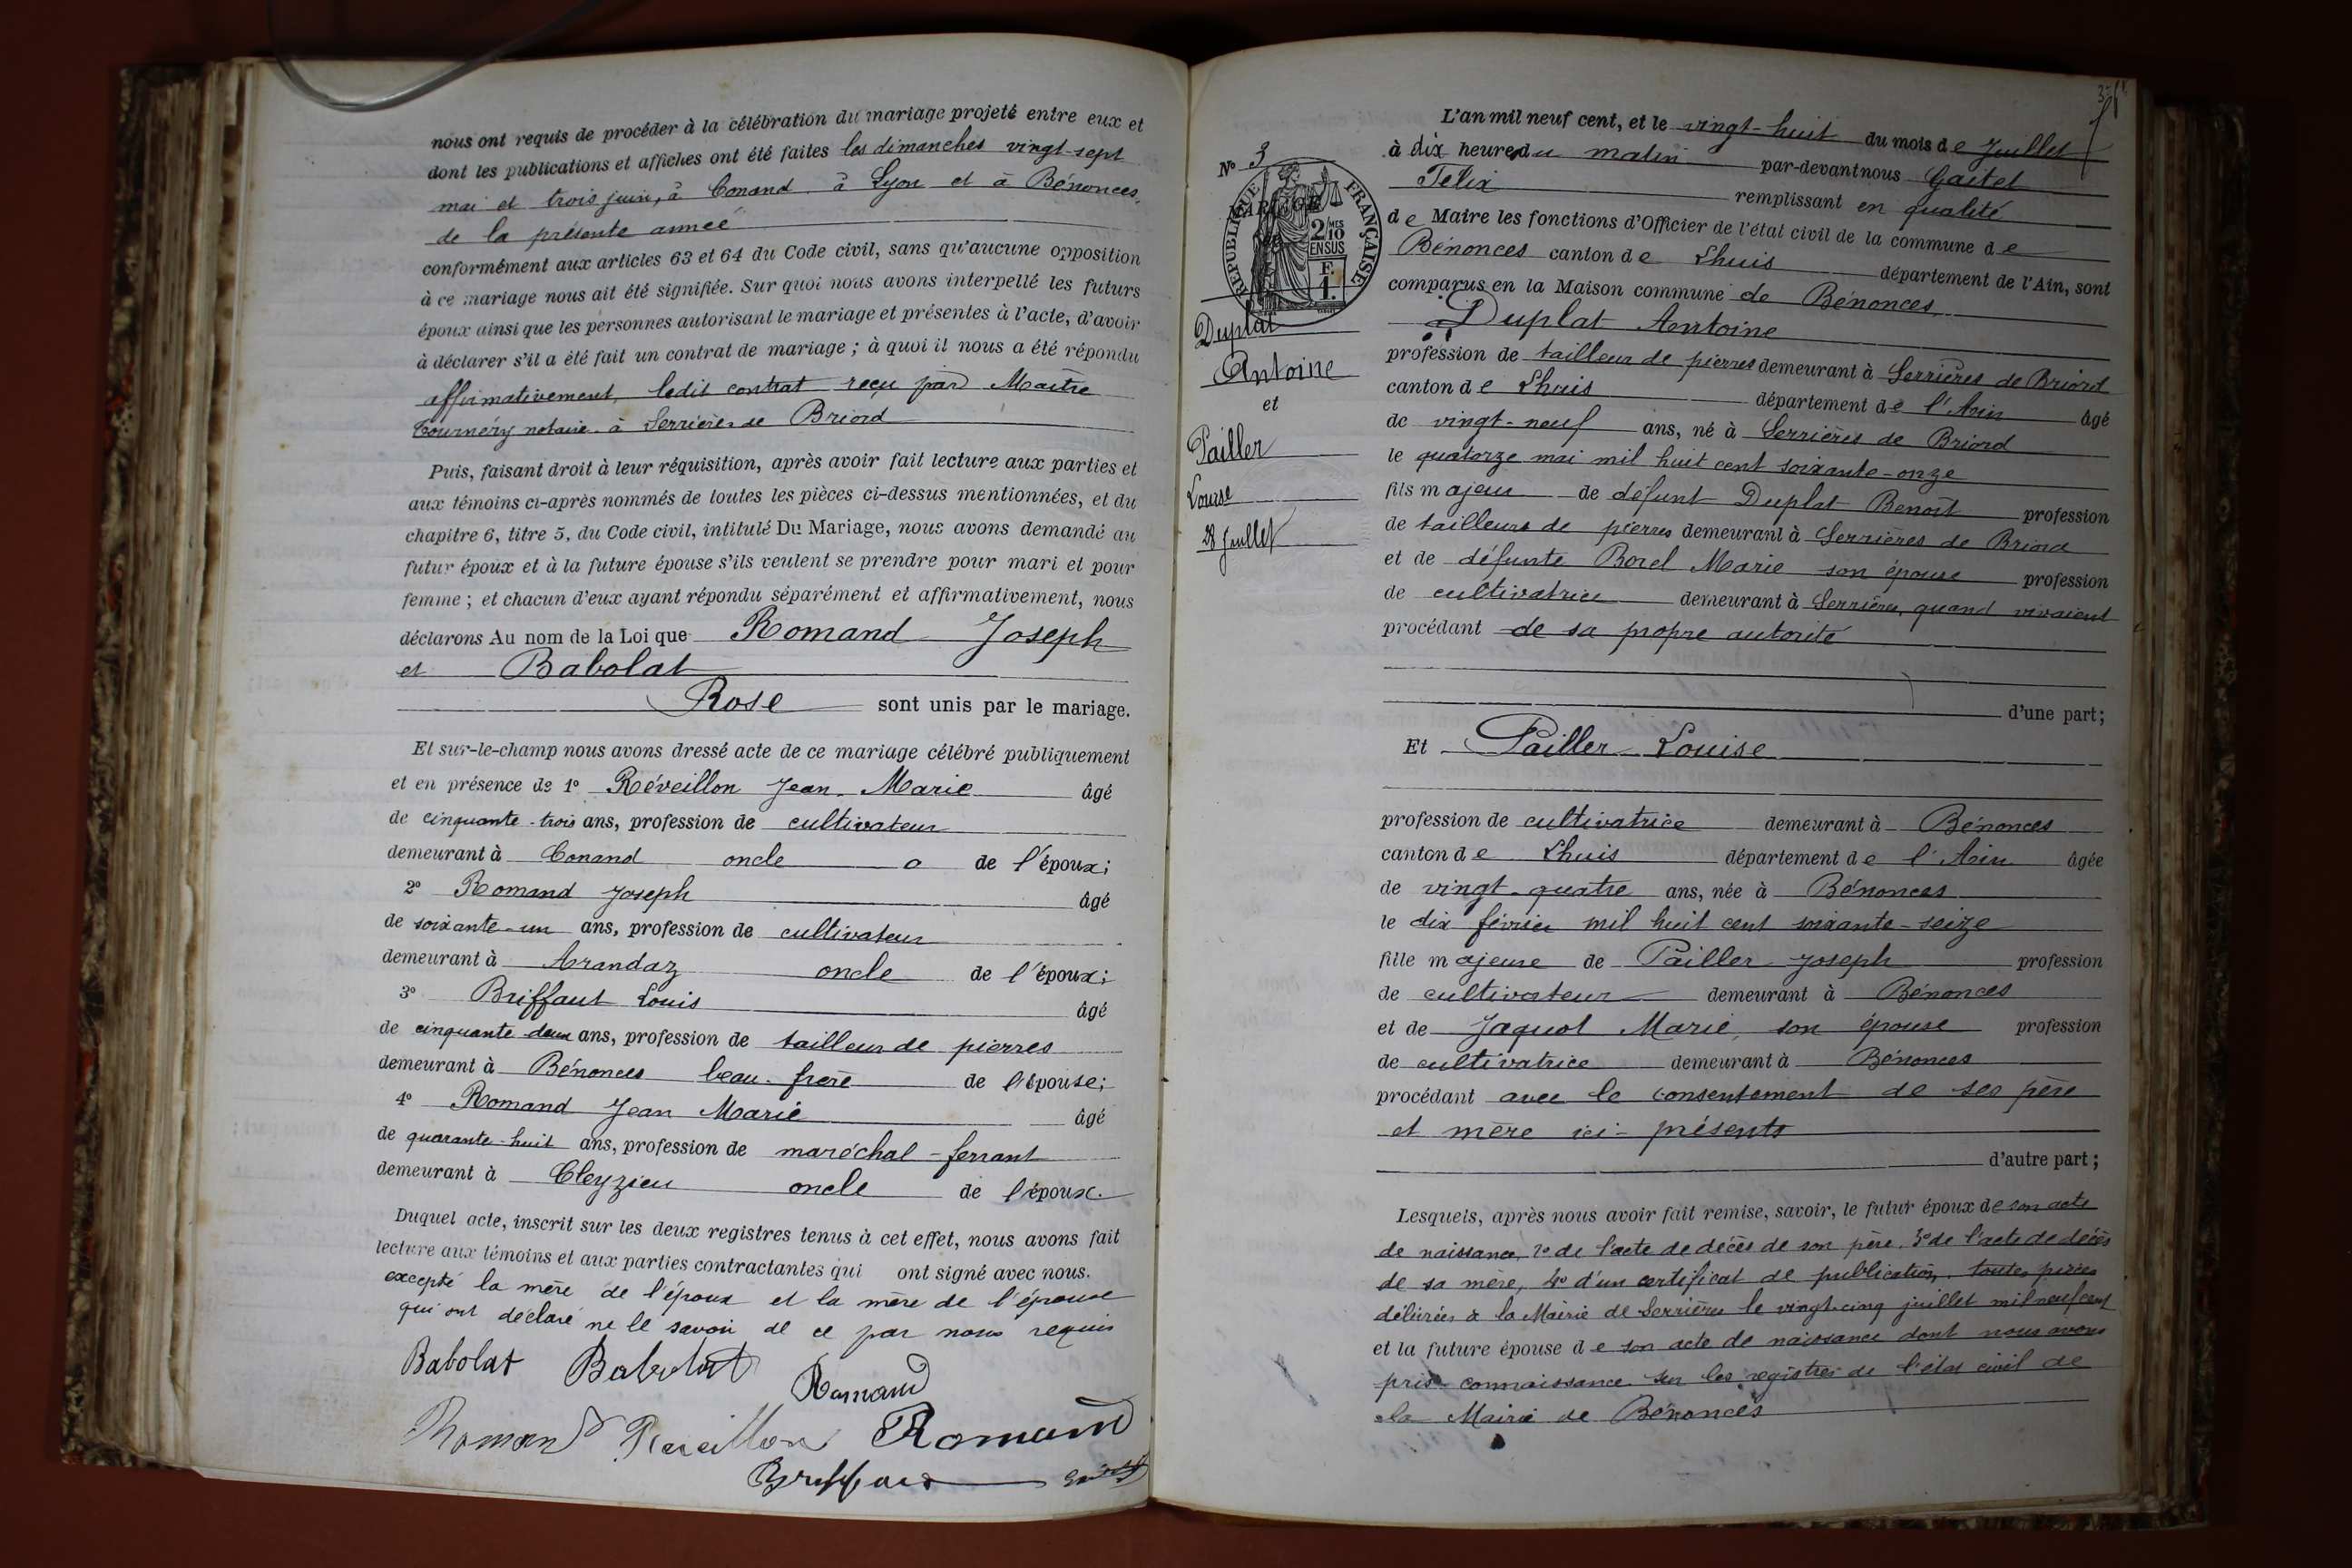 nous ont requis de procéder à la célébration du mariage projeté entre eux et
dont les publications et affiches ont été faites les dimanches vingt-sept
mai et trois juin, à Conand à Lyon et à Bénonces,
de la présente année
conformément aux articles 63 et 64 du Code civil, sans qu'aucune opposition
à ce mariage nous ait été signifiée. Sur quoi nous avons interpellé les futurs
époux ainsi que les personnes autorisant le mariage et présentes à l'acte, d'avoir
à déclarer s'il a été fait un contrat de mariage ; à quoi il nous a été répondu
affirmativement, ledit contrat reçu par Maître
Tournéry notaire à Serrières de Briord
Puis, faisant droit à leur réquisition, après avoir fait lecture aux parties et
aux témoins ci-après nommés de toutes les pièces ci-dessus mentionnées, et du
chapitre 6, titre 5, du Code civil, intitulé Du Mariage, nous avons demandé au
futur époux et à la future épouse s'ils veulent se prendre pour mari et pour
femme ; et chacun d'eux ayant répondu séparément et affirmativement, nous
déclarons Au nom de la Loi que Romand Joseph
et Babolat
Rose sont unis par le mariage.
Et sur-le-champ nous avons dressé acte de ce mariage célébré publiquement
et en présence de 1° Réveillon Jean-Marie âgé
de cinquante-trois ans, profession de cultivateur
demeurant à Conand oncle de l'époux ;
2° Romand Joseph âgé
de soixante-un ans, profession de cultivateur
demeurant à Arandaz oncle de l'époux ;
3° Briffaut Louis âgé
de cinquante-deux ans, profession de tailleur de pierres
demeurant à Bénonces beau-frère de l'épouse ;
4° Romand Jean Marie âgé
de quarante-huit ans, profession de maréchal-ferrant
demeurant à Cleyzieu oncle de l'époux.
Duquel acte, inscrit sur les deux registres tenus à cet effet, nous avons fait
lecture aux témoins et aux parties contractantes qui ont signé avec nous.
excepté la mère de l'époux et la mère de l'épouse
qui ont déclaré ne le savoir de ce par nous requis
Babolat Babolat Romand
Romand Réveillon Romand
Briffaut
N° 3
MARIAGE
RÉPUBLIQUE FRANÇAISE
2/10 MES
EN SUS
F.
1.
Duplat
Antoine
et
Pailler
Louise
28 Juillet
L'an mil neuf cent, et le vingt-huit du mois de Juillet
à dix heures du matin par-devant nous Gaitet
Félix remplissant en qualité
de Maire les fonctions d'Officier de l'état civil de la commune de
Bénonces canton de Lhuis département de l'Ain, sont
comparus en la Maison commune de Bénonces,
Duplat Antoine
profession de tailleur de pierres demeurant à Serrières de Briord
canton de Lhuis département de l'Ain âgé
de vingt-neuf ans, né à Serrières de Briord
le quatorze mai mil huit cent soixante-onze
fils majeur de défunt Duplat Benoît profession
de tailleur de pierres demeurant à Serrières de Briord
et de défunte Borel Marie son épouse profession
de cultivatrice demeurant à Serrières, quand vivaient
procédant de sa propre autorité
d'une part;
Et Pailler Louise
profession de cultivatrice demeurant à Bénonces
canton de Lhuis département de l'Ain âgée
de vingt-quatre ans, née à Bénonces
le dix février mil huit cent soixante-seize
fille majeure de Pailler Joseph profession
de cultivateur demeurant à Bénonces
et de Jaquot Marie, son épouse profession
de cultivatrice demeurant à Bénonces
procédant avec le consentement de ses père
et mère ici-présents
d'autre part ;
Lesquels, après nous avoir fait remise, savoir, le futur époux de son acte
de naissance, 2° de l'acte de décès de son père, 3° de l'acte de décès
de sa mère, 4° d'un certificat de publication, toutes pièces
délivrées à la Mairie de Serrières le vingt-cinq juillet mil neuf cent
et la future épouse de son acte de naissance dont nous avons
pris connaissance sur les registres de l'état civil de
la Mairie de Bénonces